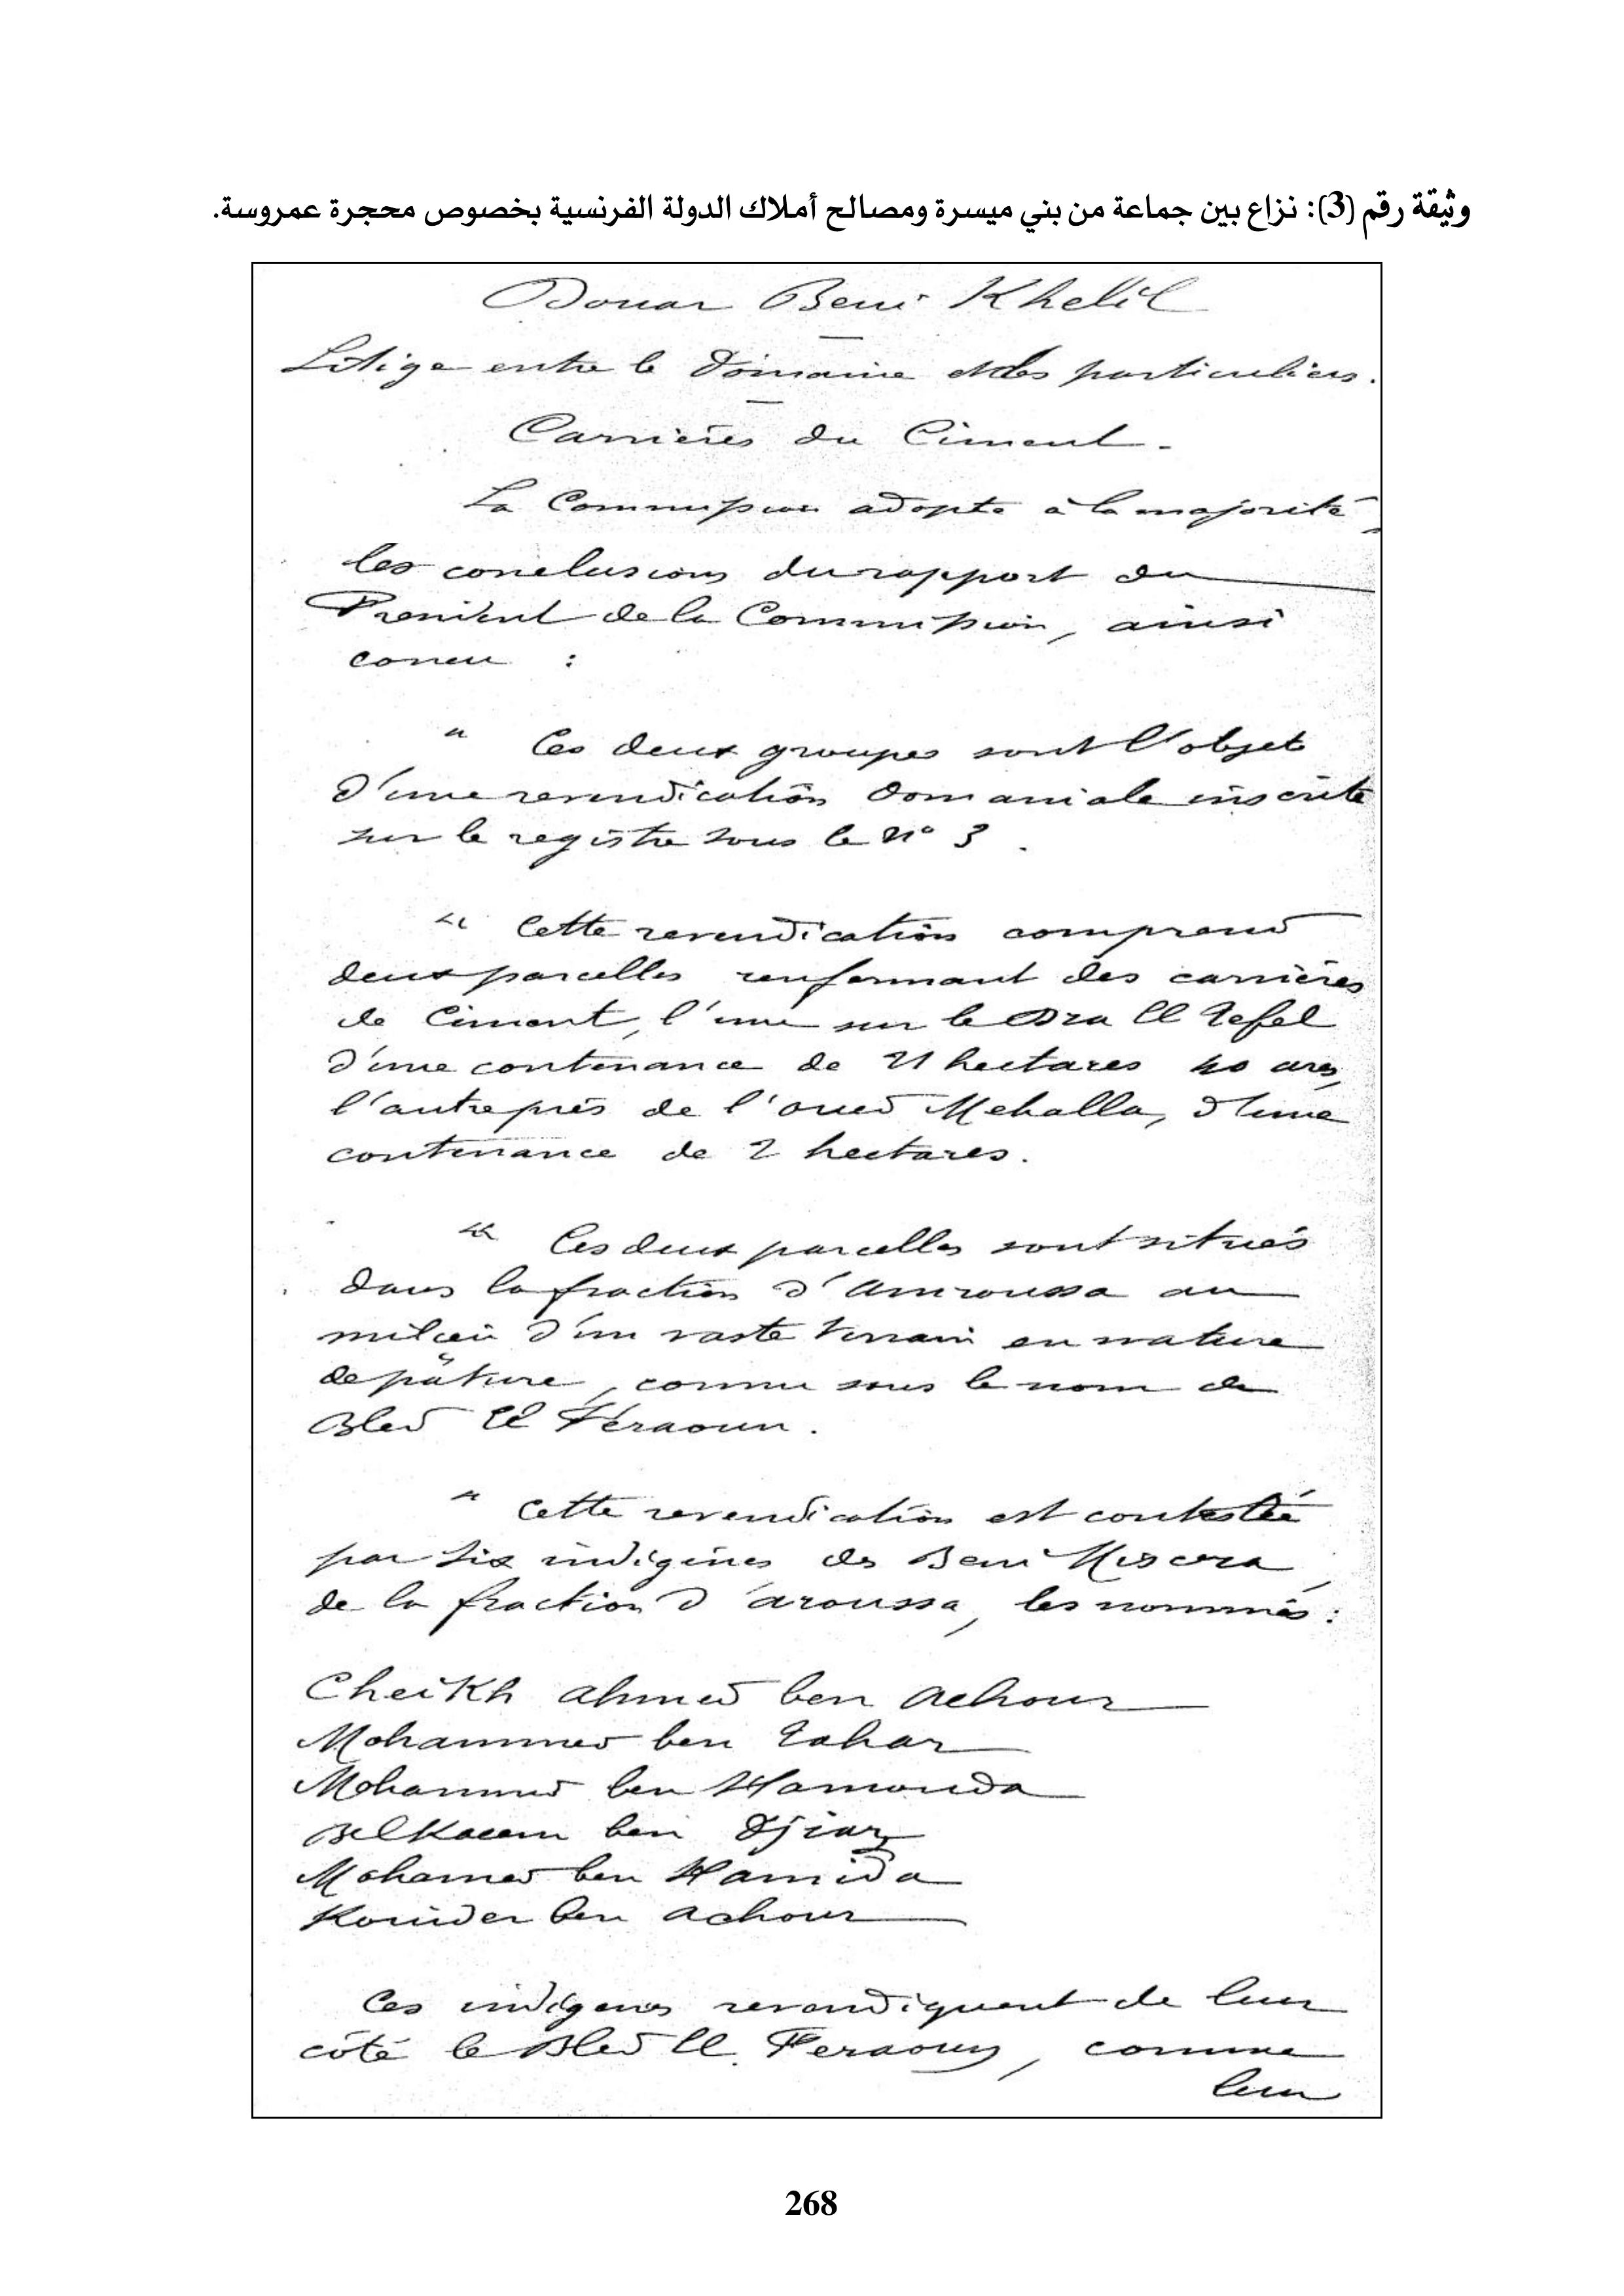 وثيقة رقم (3): نزاع بين جماعة من بني ميسرة ومصالح أملاك الدولة الفرنسية بخصوص محجرة عمروسة.
Douar Beni Khelil
Litige entre le Domaine et des particuliers.
Carrières du Ciment.
La Commission adopte à la majorité
les conclusions du rapport du
Président de la Commission, ainsi
concu :
" Ces deux groupes sont l'objet
d'une revendication domaniale inscrite
sur le registre sous le N° 3.
" Cette revendication comprend
deux parcelles renfermant des carrières
de Ciment, l'une sur le Dra El Tefel
d'une contenance de 21 hectares 40 ares,
l'autre près de l'oued Mehalla, d'une
contenance de 2 hectares.
" Ces deux parcelles sont situés
dans la fraction d'Amroussa au
milieu d'un vaste terrain en nature
de pâture, connu sous le nom de
Bled El Feraoun.
" Cette revendication est contestée
par six indigènes des Beni Miscera
de la fraction d'aroussa, les nommés :
Cheikh Ahmed ben Achour
Mohammed ben Tahar
Mohammed ben Hamouda
Belkacem ben Djiar
Mohamed ben Hamida
Kouider ben Achour
Ces indigènes revendiquent de leur
côté le Bled El Feraoun, comme
leur
268